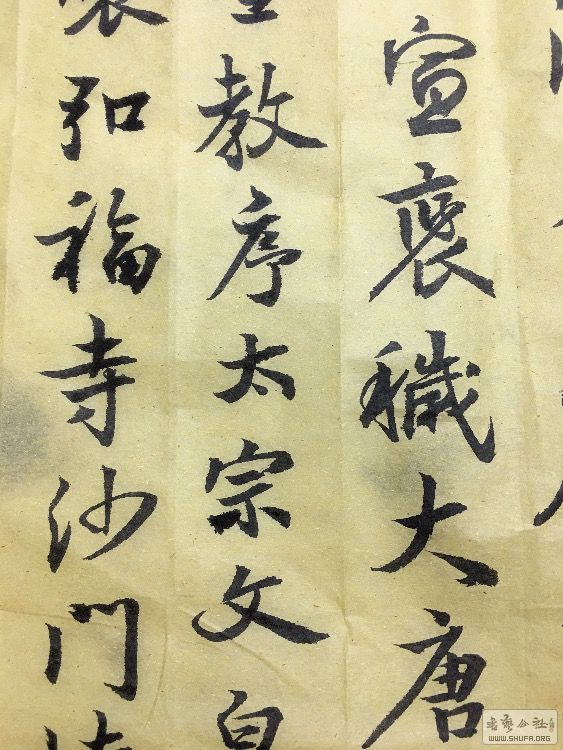 宣褒穢大唐
教序太宗文
弘福寺沙門
書藝公社
WWW.SHUFA.ORG